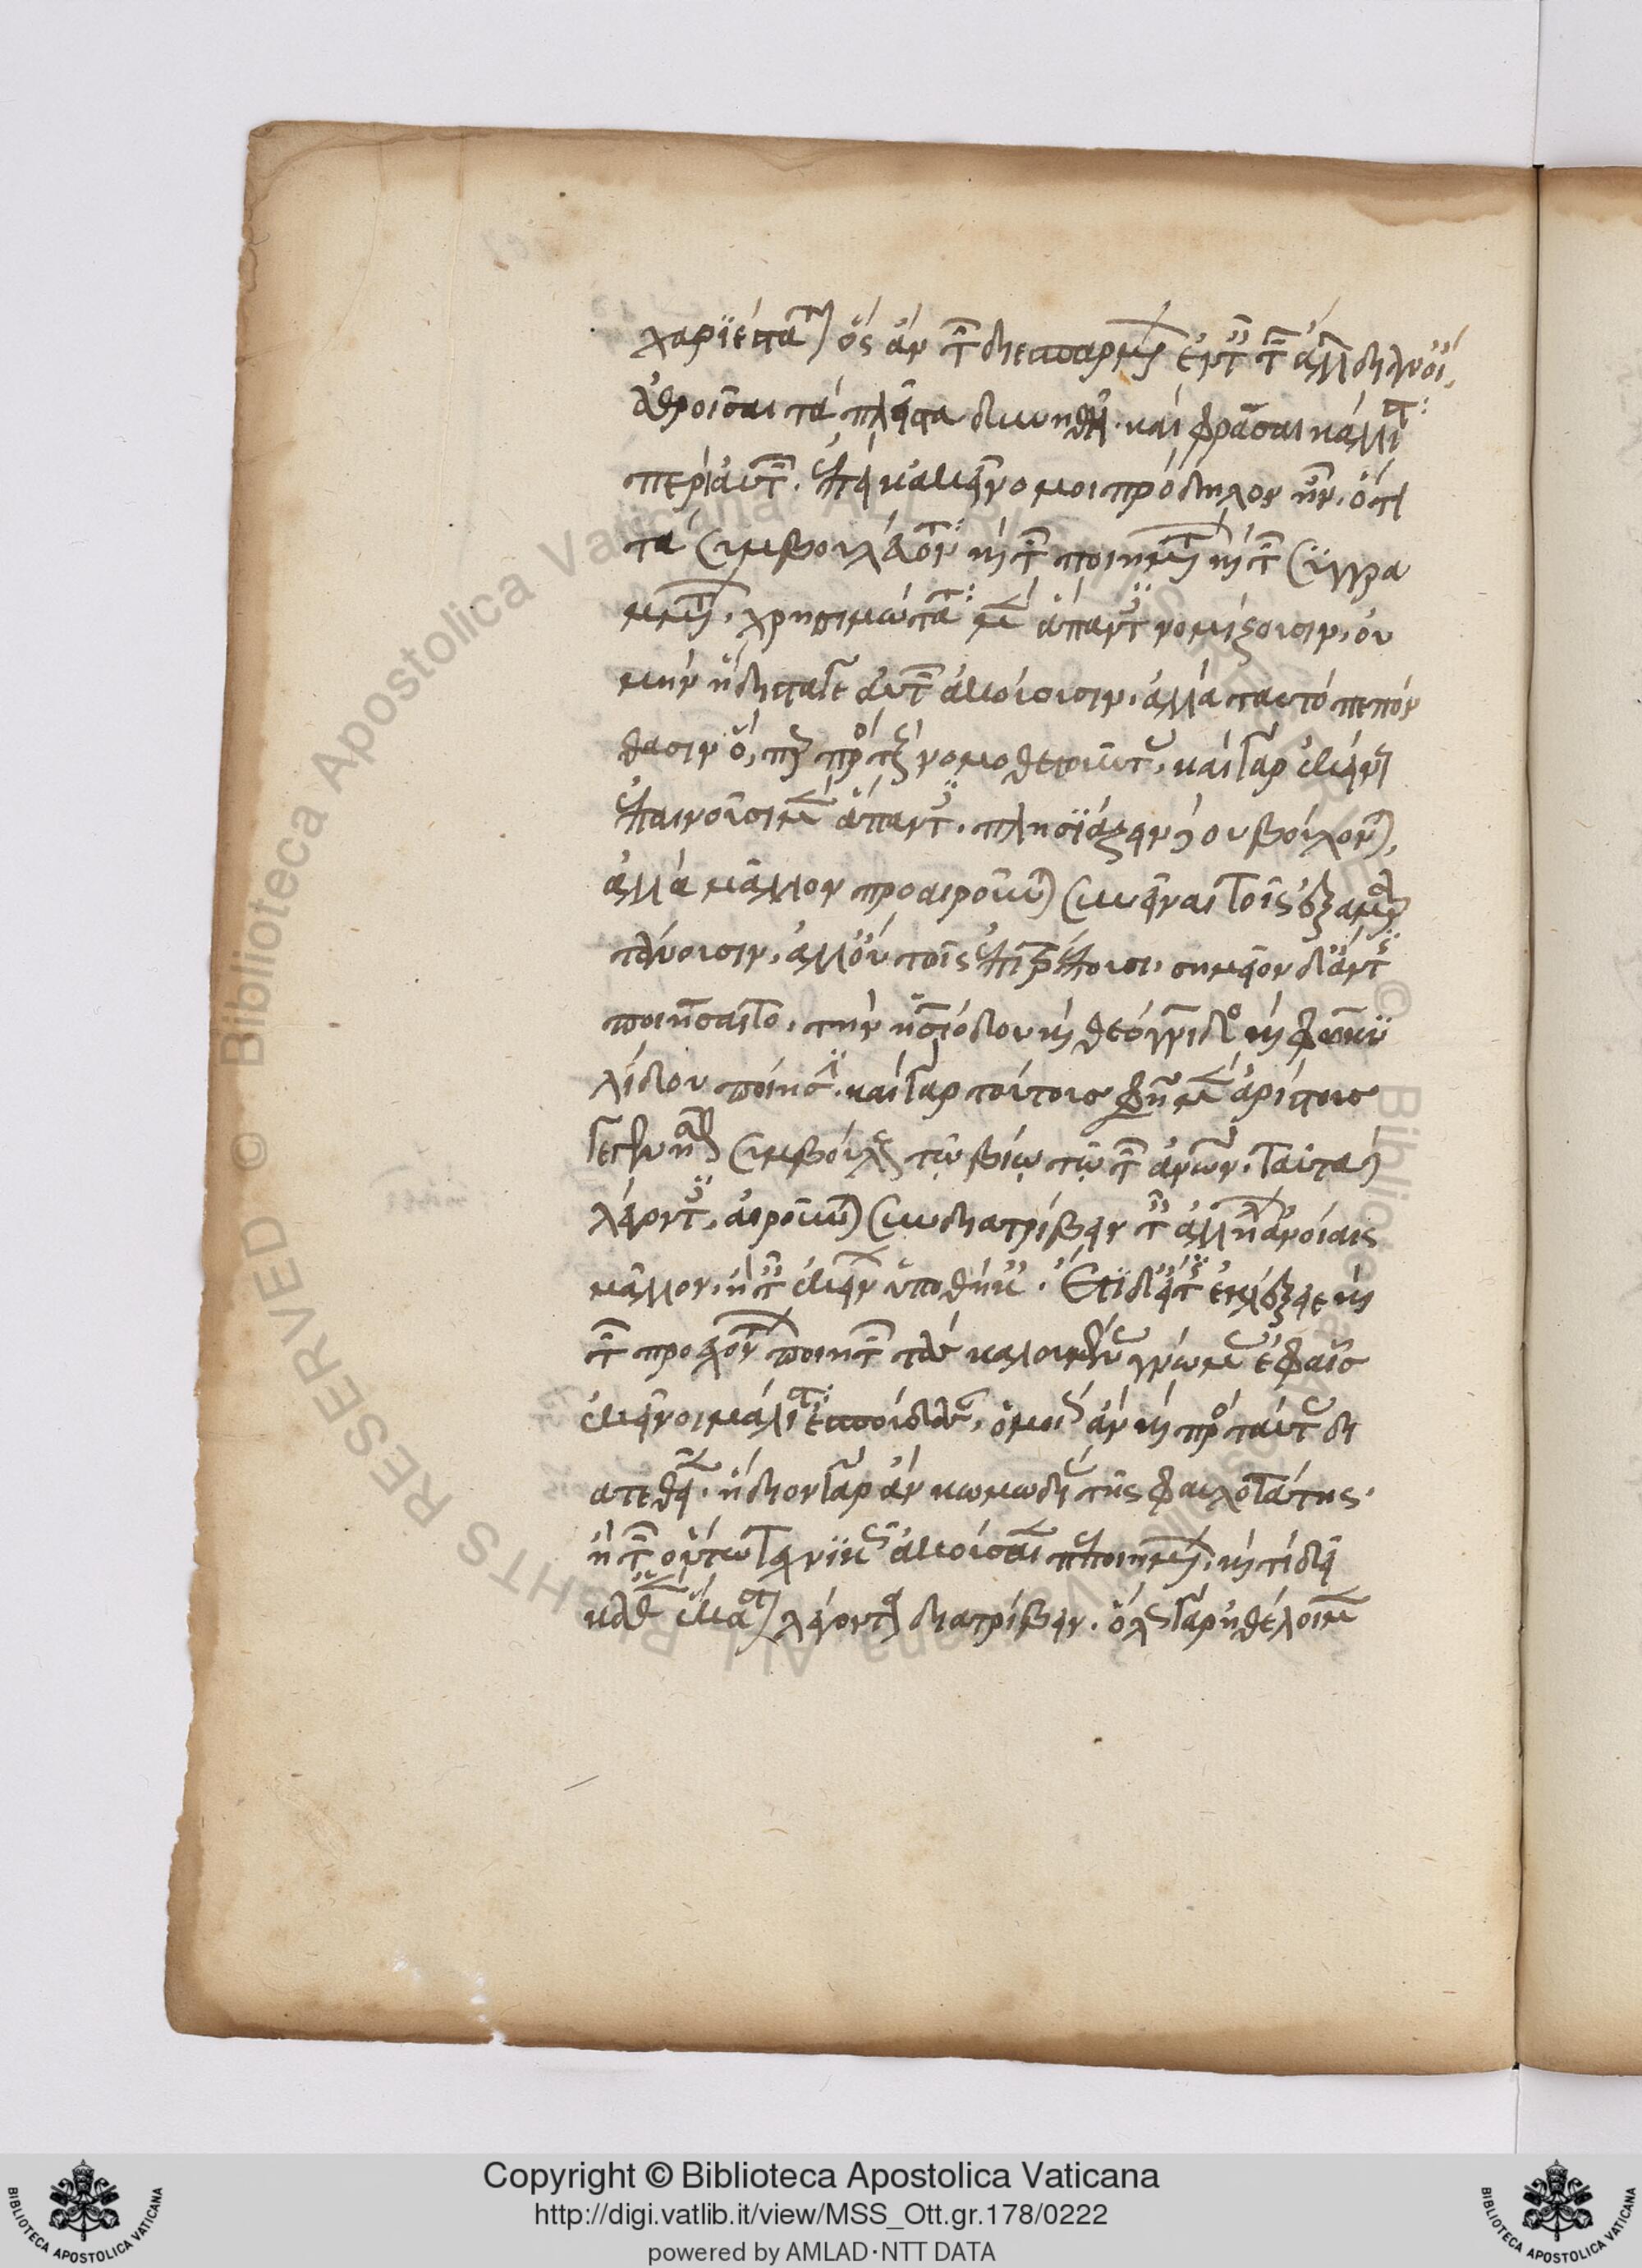 χαριέστατος ὃς ἂν τῶν διεσπαρμένων ἐν ταῖς τῶν ἄλλων διανοίαις,
ἀθροῖσαι τὰ πλεῖστα δυνηθῇ· καὶ φράσαι κάλλιστα
περὶ αὐτῶν. ἐπεὶ κἀκεῖνό μοι πρόδηλον ἦν, ὅτι
τὰ συμβουλεύοντα καὶ τῶν ποιημάτων καὶ τῶν συγγρα
μμάτων, χρησιμώτατα μὲν ἅπαντες νομίζουσιν, οὐ
μὴν ἥδιστά γε αὐτῶν ἀκούουσιν, ἀλλὰ ταυτὸ πεπόν
θασιν ὅπερ πρὸς τοὺς νουθετοῦντας, καὶ γὰρ ἐκείνους
ἐπαινοῦσι μὲν ἅπαντες, πλησιάζειν δὲ οὐ βούλονται,
ἀλλὰ μᾶλλον προαιροῦνται συνεῖναι τοῖς ἐξαμαρ
τάνουσιν, ἀλλ' οὐ τοῖς ἀποτρέπουσι. σημεῖον δ' ἄν τις
ποιήσαιτο, τὴν ἡσιόδου καὶ θεόγνιδος καὶ φωκυ
λίδου ποίησιν. καὶ γὰρ τούτους φησὶ μὲν ἀρίστους
γεγενῆσθαι συμβούλους τῷ βίῳ τῷ τῶν ἀνθρώπων. ταῦτα δὲ
λέγοντες, αἱροῦνται συνδιατρίβειν ταῖς ἀλλήλων ἀνοίαις
μᾶλλον, ἢ ταῖς ἐκείνων ὑποθήκαις. ἔτι δ' εἴ τις ἐκλέξειε καὶ
τῶν προεχόντων ποιητῶν τὰς καλουμένας γνώμας ἐφ' αἷς
ἐκεῖνοι μάλιστα ἐσπούδασαν, ὁμοίως ἂν καὶ πρὸς ταύτας δι
ατεθεῖεν· ἥδιον γὰρ ἂν κωμῳδίας τῆς φαυλοτάτης·
ἢ τῶν οὕτω τεχνικῶς ἀκούσαιεν πεποιημένων, καὶ τί δεῖ
καθ' ἕκαστον λέγοντα διατρίβειν. ὅλως γὰρ εἰ θέλοιμεν
© Biblioteca Apostolica Vaticana ALL RIGHTS RESERVED
Copyright © Biblioteca Apostolica Vaticana
http://digi.vatlib.it/view/MSS_Ott.gr.178/0222
powered by AMLAD·NTT DATA
BIBLIOTECA APOSTOLICA VATICANA
BIBLIOTECA APOSTOLICA VATICANA